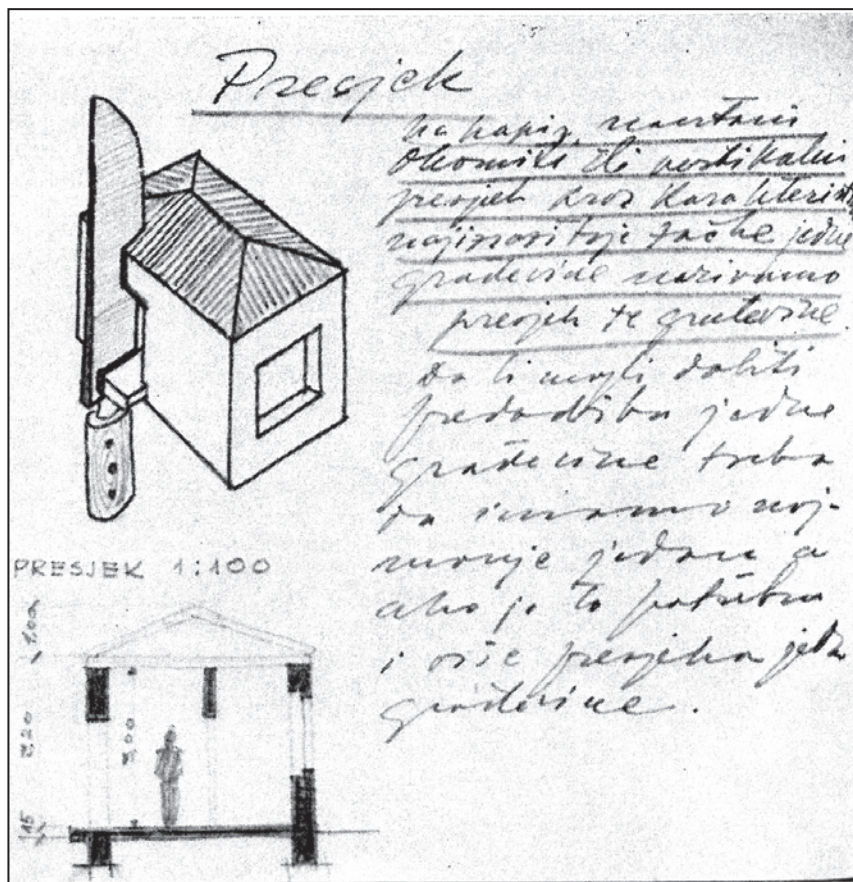 Presjek
na papir nacrtani
okomiti ili vertikalni
presjek kroz karakteris
najvažnije tačke jedne
građevine nazivamo
presjek te građevine.
Da bi mogli dobiti
predodžbu jedne
građevine treba
da imamo naj-
manje jedan a
ako je to potrebno
i više presjeka jedne
građevine.
PRESJEK 1:100
1.00
3.20
3.00
15